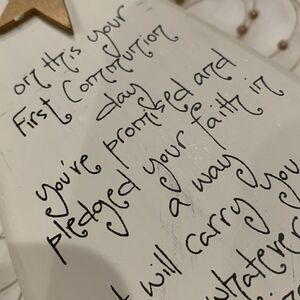 on this your
First Communion
day
you're promised and
pledged your faith in
a way
will carry you
whatever